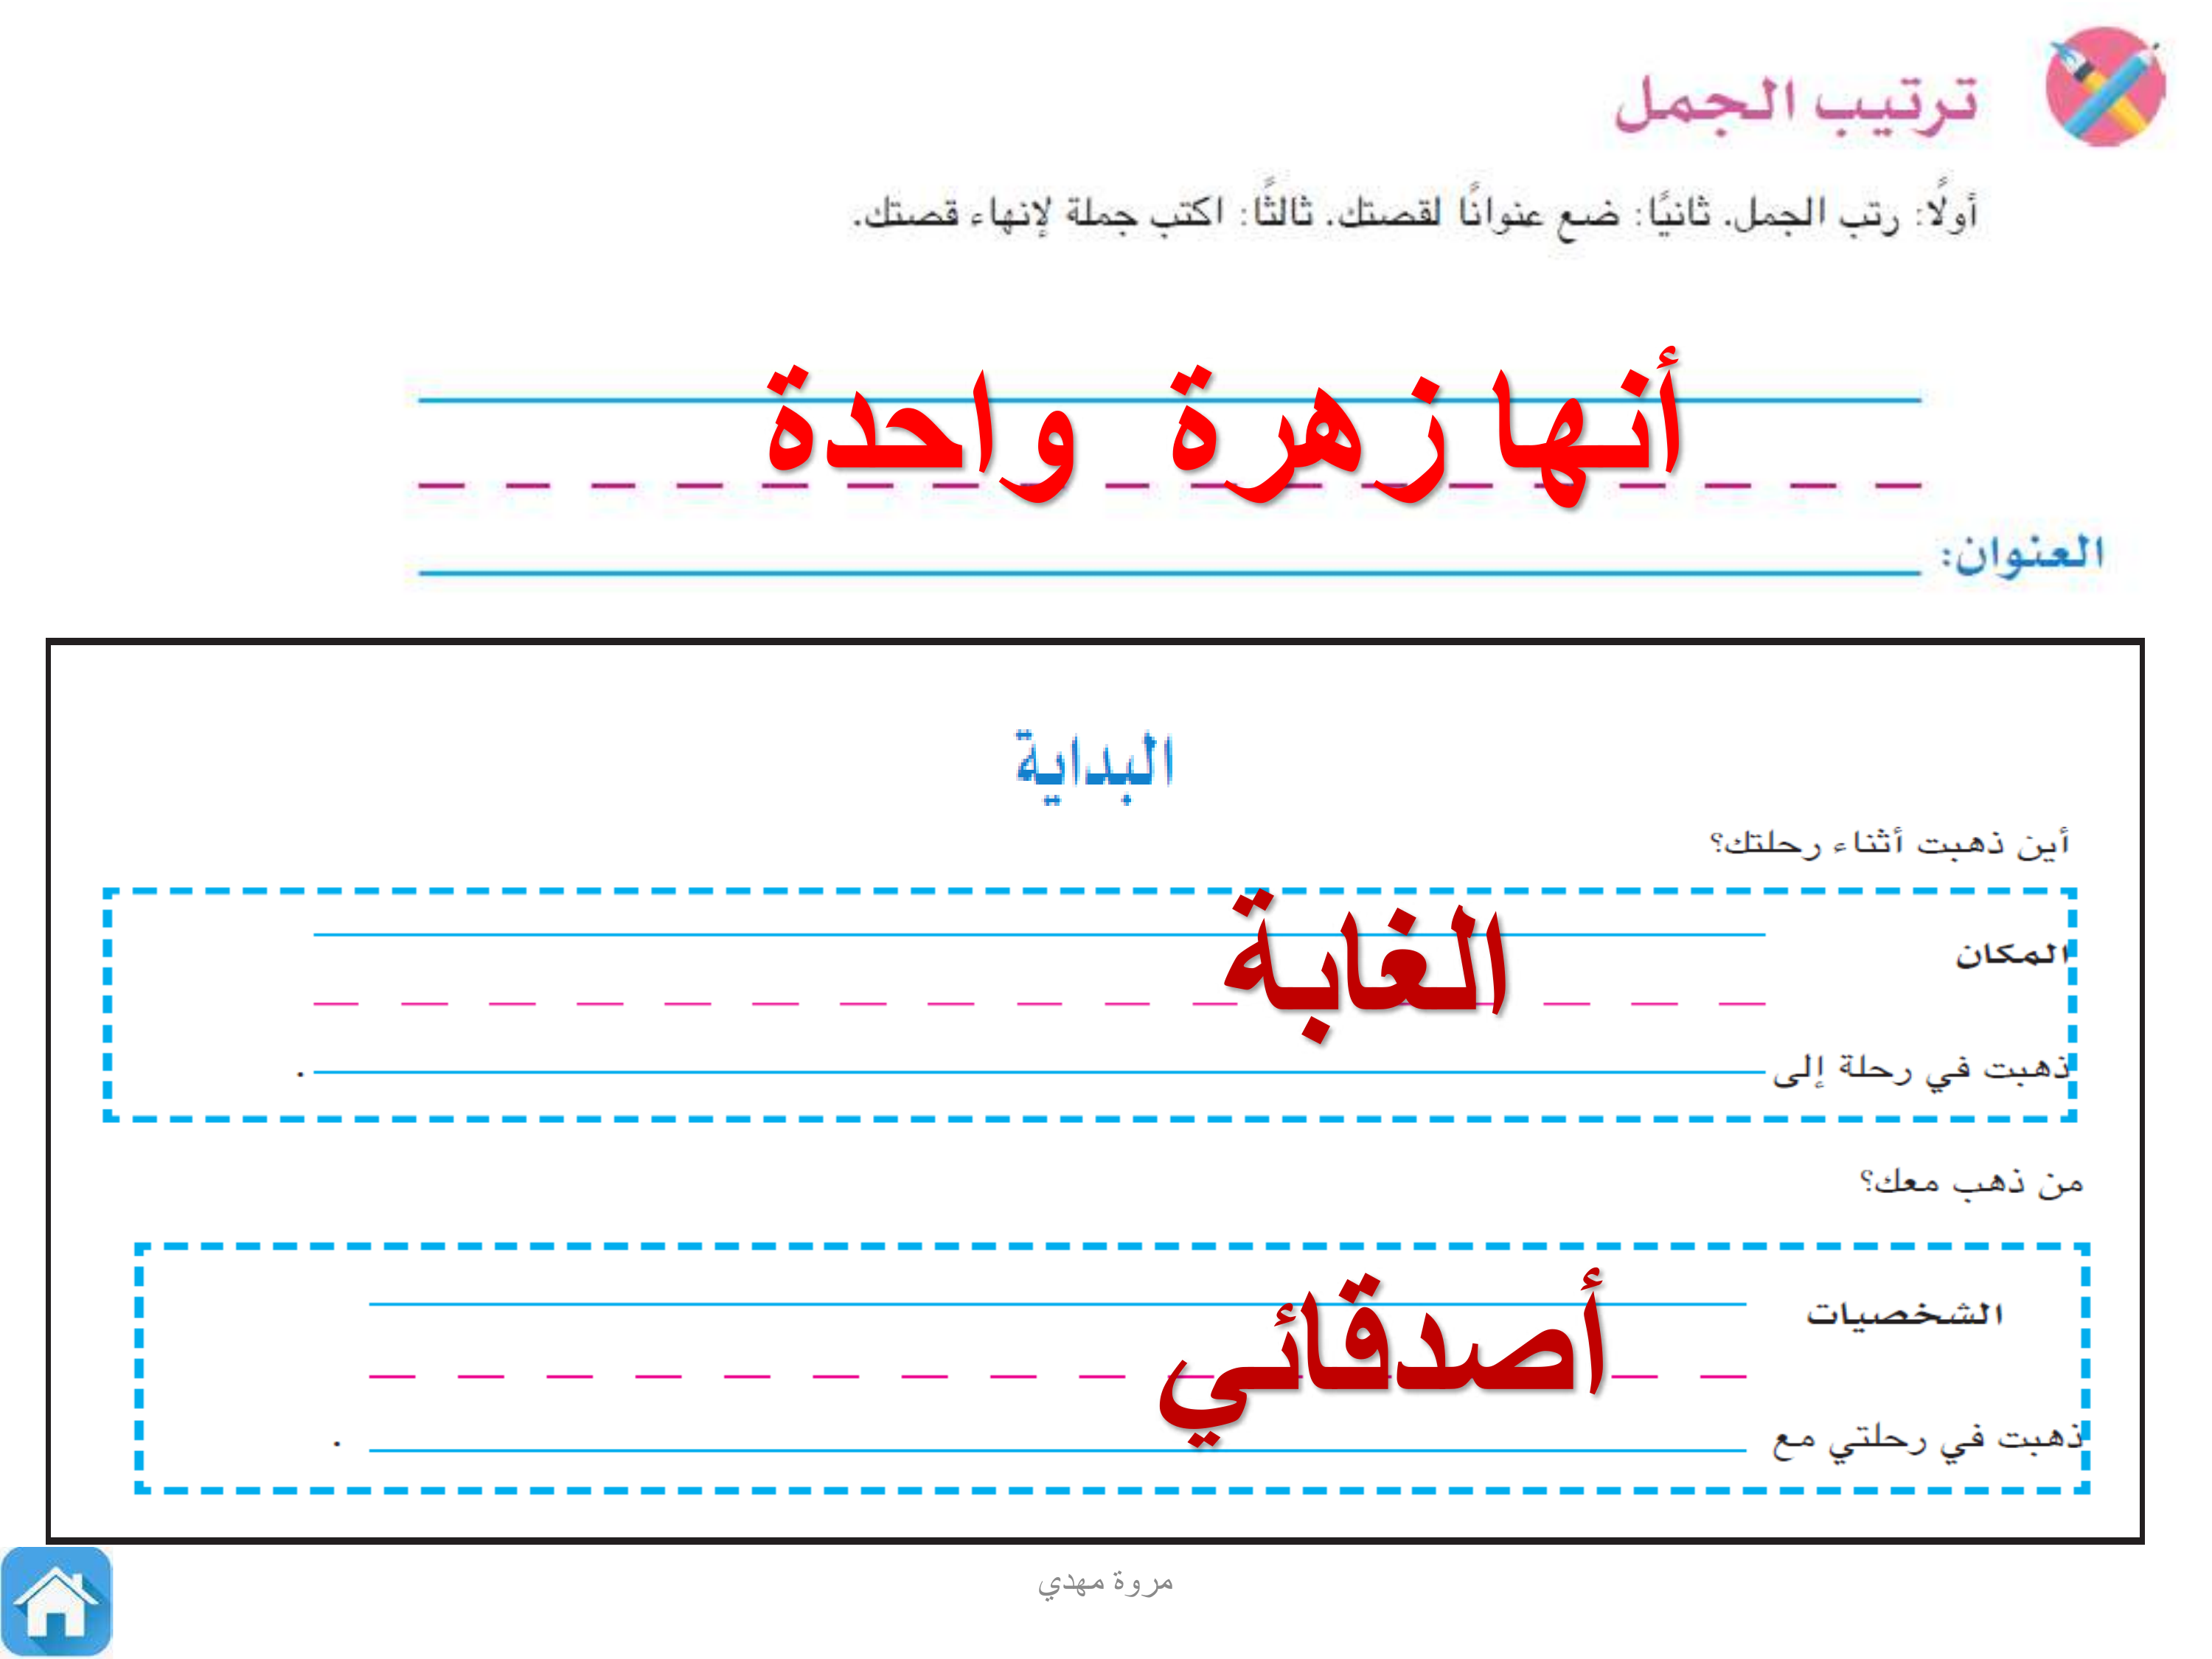 ترتيب الجمل
أولًا: رتب الجمل. ثانيًا: ضع عنوانًا لقصتك. ثالثًا: اكتب جملة لإنهاء قصتك.
أنها زهرة واحدة
العنوان:
البداية
أين ذهبت أثناء رحلتك؟
المكان
الغابة
ذهبت في رحلة إلى .
من ذهب معك؟
الشخصيات
أصدقائي
ذهبت في رحلتي مع .
مروة مهدي